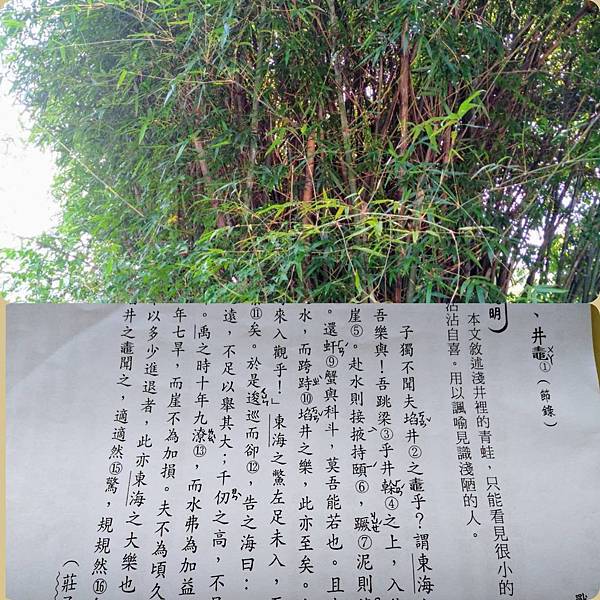 、井鼃①(節錄)
ㄨㄚ
明
本文敘述淺井裡的青蛙，只能看見很小的
沾沾自喜。用以諷喻見識淺陋的人。
子獨不聞夫埳井②之鼃乎？謂東海
吾樂與！吾跳梁③乎井榦④之上，入
崖⑤。赴水則接掖持頤⑥，蹶⑦泥則
。還虷⑨蟹與科斗，莫吾能若也。且
水，而跨跱⑩埳井之樂，此亦至矣。
來入觀乎！」東海之鱉左足未入，
⑪矣。於是逡巡而卻⑫，告之海曰：
遠，不足以舉其大；千仞之高，不
。禹之時十年九潦⑬，而水弗為加益
年七旱，而崖不為加損。夫不為頃久
以多少進退者，此亦東海之大樂也
井之鼃聞之，適適然⑮驚，規規然⑯
(莊